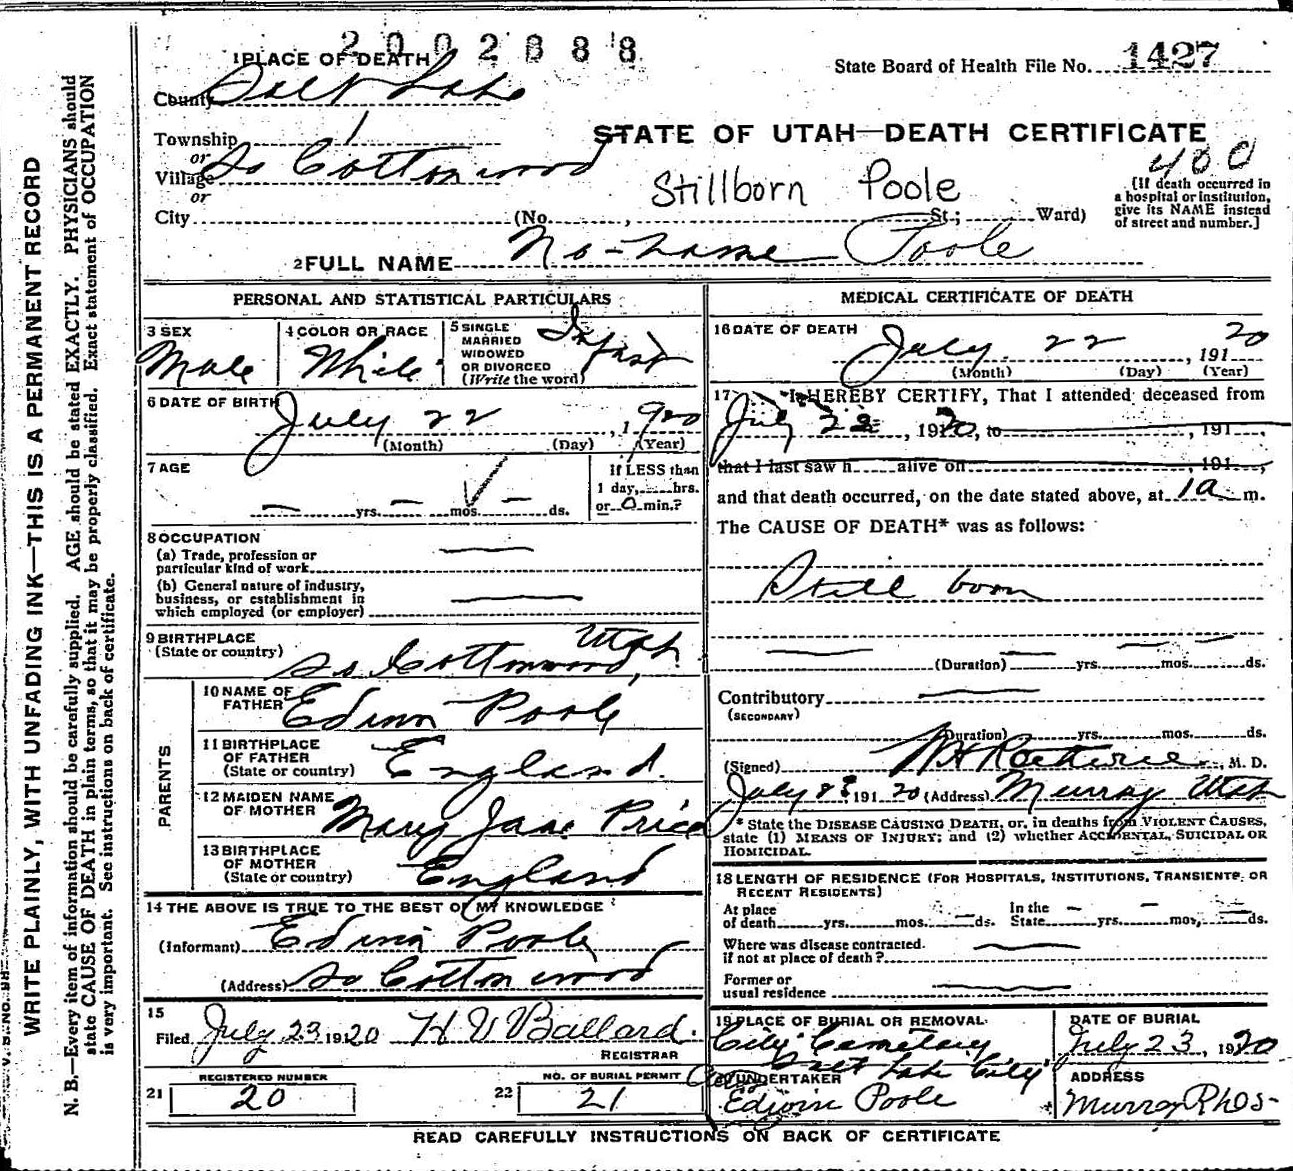 2002888
1 PLACE OF DEATH
State Board of Health File No. 1427
County Salt Lake
Township 1
or
STATE OF UTAH—DEATH CERTIFICATE
Village So Cottonwood
400
or
Stillborn Poole
[If death occurred in
a hospital or institution,
give its NAME instead
of street and number.]
City (No. , St.; Ward)
2 FULL NAME No-name Poole
PERSONAL AND STATISTICAL PARTICULARS
3 SEX
Male
4 COLOR OR RACE
White
5 SINGLE
MARRIED
WIDOWED
OR DIVORCED
(Write the word)
Infant
6 DATE OF BIRTH
July 22, 1920
(Month) (Day) (Year)
7 AGE
— yrs. — mos. — ds.
If LESS than
1 day, hrs.
or 0 min.?
8 OCCUPATION
(a) Trade, profession or
particular kind of work
(b) General nature of industry,
business, or establishment in
which employed (or employer)
9 BIRTHPLACE
(State or country)
So Cottonwood, Utah
PARENTS
10 NAME OF
FATHER
Edwin Poole
11 BIRTHPLACE
OF FATHER
(State or country)
England.
12 MAIDEN NAME
OF MOTHER
Mary Jane Price
13 BIRTHPLACE
OF MOTHER
(State or country)
England
14 THE ABOVE IS TRUE TO THE BEST OF MY KNOWLEDGE
(Informant) Edwin Poole
(Address) So Cottonwood
15
Filed July 23 1920 H V Ballard.
REGISTRAR
21 REGISTERED NUMBER
20
22 NO. OF BURIAL PERMIT
21
MEDICAL CERTIFICATE OF DEATH
16 DATE OF DEATH
July 22, 191 20
(Month) (Day) (Year)
17 I HEREBY CERTIFY, That I attended deceased from
July 22, 1920, to , 191 ,
that I last saw h alive on , 191 ,
and that death occurred, on the date stated above, at 1a m.
The CAUSE OF DEATH* was as follows:
Still born
(Duration) yrs. mos. ds.
Contributory
(SECONDARY)
(Duration) yrs. mos. ds.
(Signed) , M. D.
July 191 20 (Address) Murray Utah
* State the DISEASE CAUSING DEATH, or, in deaths from VIOLENT CAUSES,
state (1) MEANS OF INJURY; and (2) whether ACCIDENTAL, SUICIDAL OR
HOMICIDAL.
18 LENGTH OF RESIDENCE (FOR HOSPITALS, INSTITUTIONS, TRANSIENTS, OR
RECENT RESIDENTS)
At place
of death yrs. mos. ds.
In the
State yrs. mos. ds.
Where was disease contracted.
if not at place of death?
Former or
usual residence
19 PLACE OF BURIAL OR REMOVAL
City Cemetery
Salt Lake City
DATE OF BURIAL
July 23, 1920
UNDERTAKER
Edwin Poole
ADDRESS
Murray Rhos-
READ CAREFULLY INSTRUCTIONS ON BACK OF CERTIFICATE
WRITE PLAINLY, WITH UNFADING INK—THIS IS A PERMANENT RECORD
N. B.—Every item of information should be carefully supplied. AGE should be stated EXACTLY. PHYSICIANS should
state CAUSE OF DEATH in plain terms, so that it may be properly classified. Exact statement of OCCUPATION
is very important. See instructions on back of certificate.